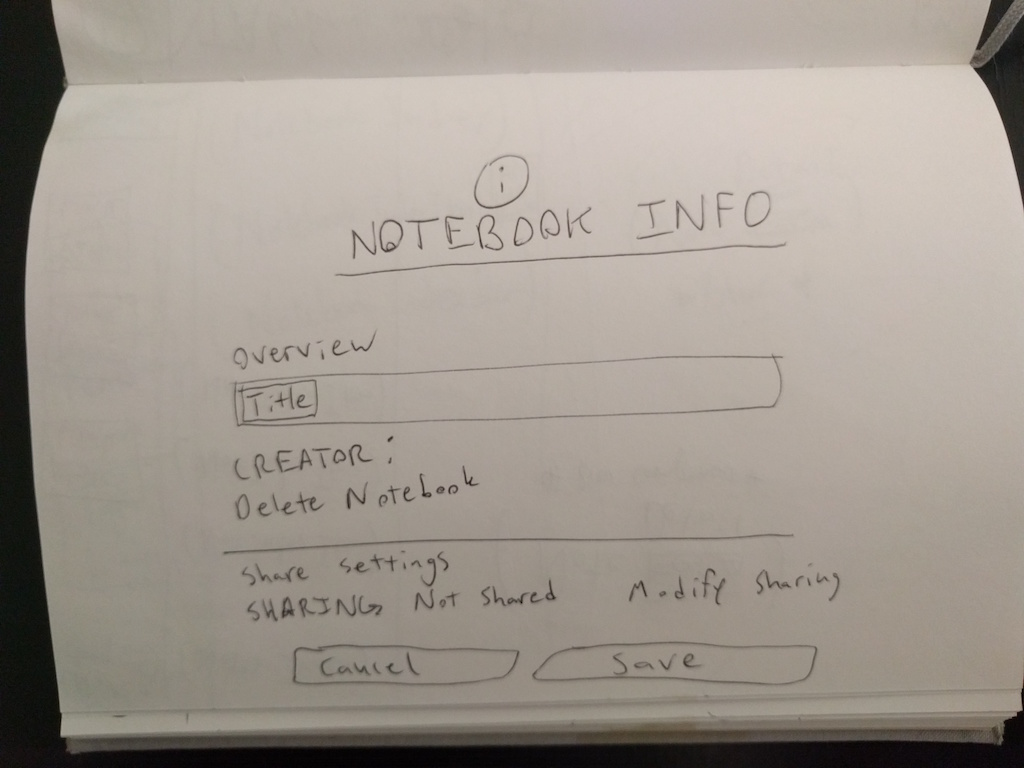 i
NOTEBOOK INFO
Overview
Title
CREATOR:
Delete Notebook
Share settings
SHARING Not shared Modify sharing
Cancel Save